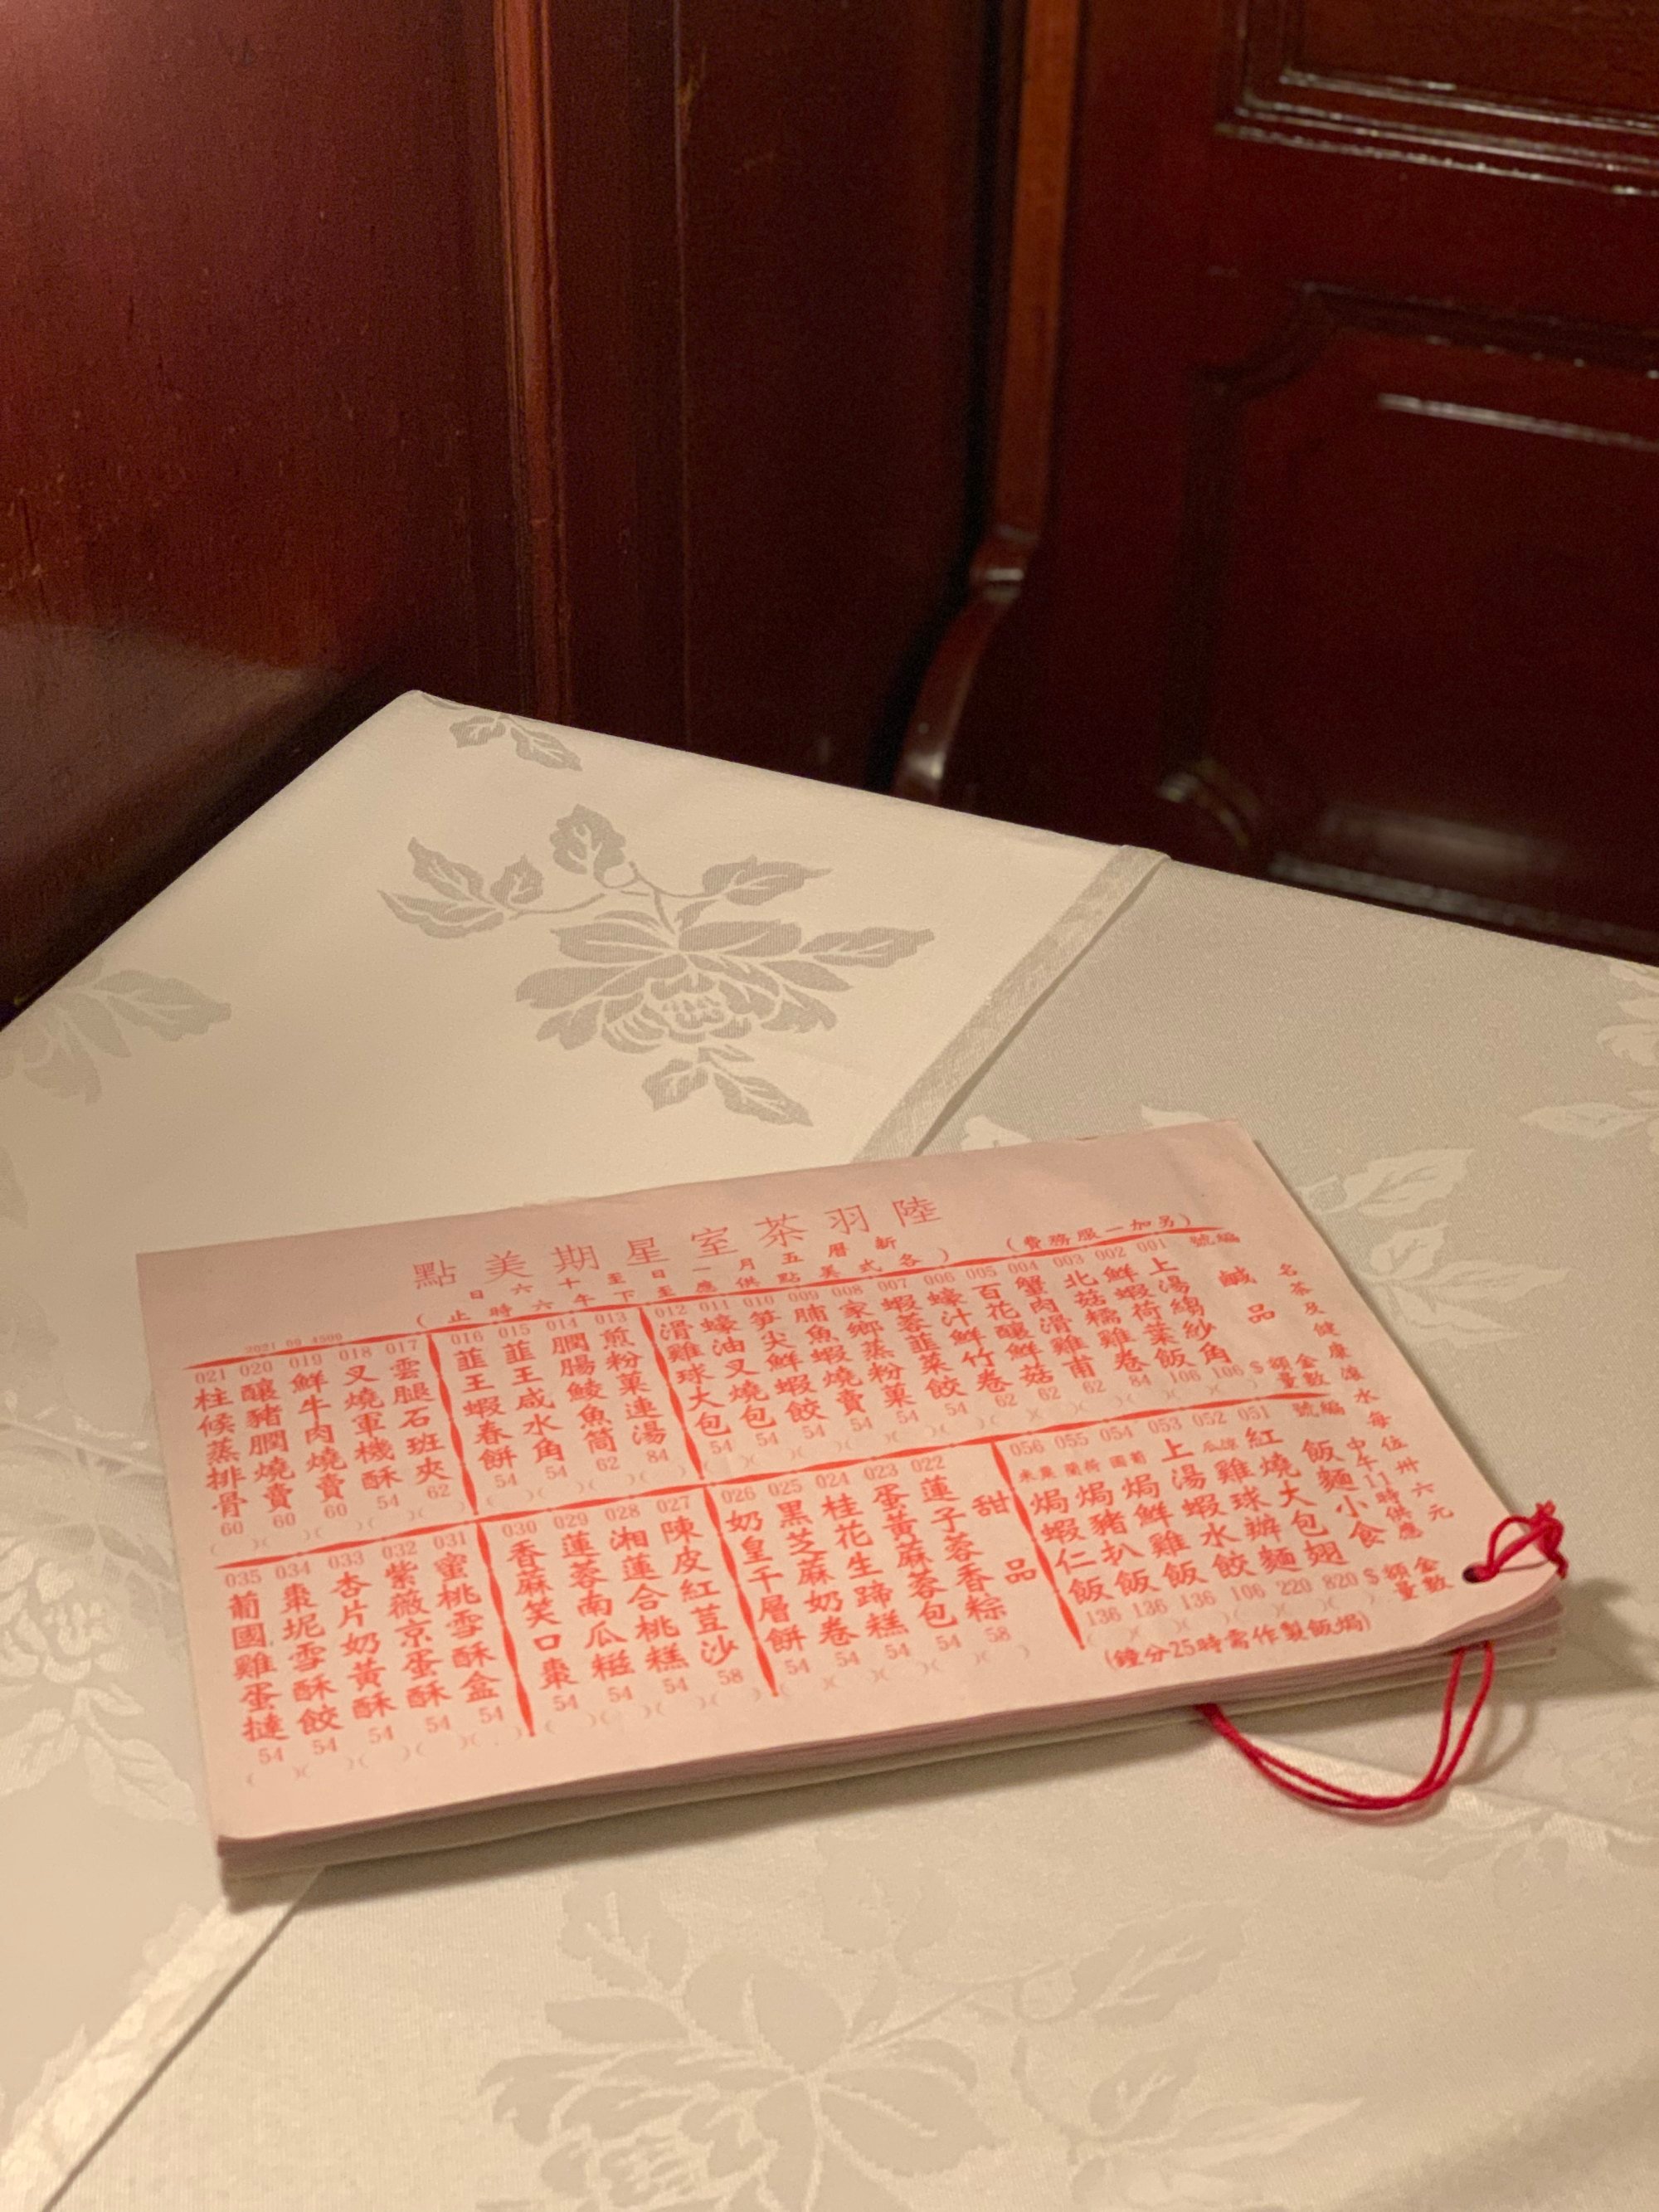 陸羽茶室星期美點
新曆五月一日至十六日
(各式美點供應至下午六時止)
(另加一服務費)
2021 09 4500
名茶及健康滾水每位卅六元
編號 鹹品 金額 $ 數量
001 上湯縐紗角 106
002 鮮蝦荷葉飯 106
003 北菇糯雞卷 84
004 蟹肉滑雞甫 62
005 百花釀鮮菇 62
006 蠔汁鮮竹卷 62
007 蝦蓉韮菜餃 54
008 家鄉蒸粉菓 54
009 脯魚蝦燒賣 54
010 筍尖鮮蝦餃 54
011 蠔油叉燒包 54
012 滑雞球大包 54
013 煎粉菓連湯 84
014 膶腸鯪魚筒 62
015 韮王咸水角 54
016 韮王蝦春餅 54
017 雲腿石班夾 62
018 叉燒軍機酥 54
019 鮮牛肉燒賣 60
020 釀豬膶燒賣 60
021 柱候蒸排骨 60
編號 飯麵小食 中午11時供應 金額 $ 數量
051 紅燒大包翅 820
052 凉瓜雞球辦麵 220
053 上湯蝦水餃 106
054 葡國焗鮮雞飯 136
055 荷蘭焗豬扒飯 136
056 粟米焗蝦仁飯 136
(焗飯製作需時25分鐘)
甜品
022 蓮子蓉香粽 58
023 蛋黃蔴蓉包 54
024 桂花生蹄糕 54
025 黑芝蔴奶卷 54
026 奶皇千層餅 54
027 陳皮紅荳沙 58
028 湘蓮合桃糕 54
029 蓮蓉南瓜糍 54
030 香蔴笑口棗 54
031 蜜桃雪酥盒 54
032 紫薇京蛋酥 54
033 杏片奶黃酥 54
034 棗坭雪酥餃 54
035 葡國雞蛋撻 54